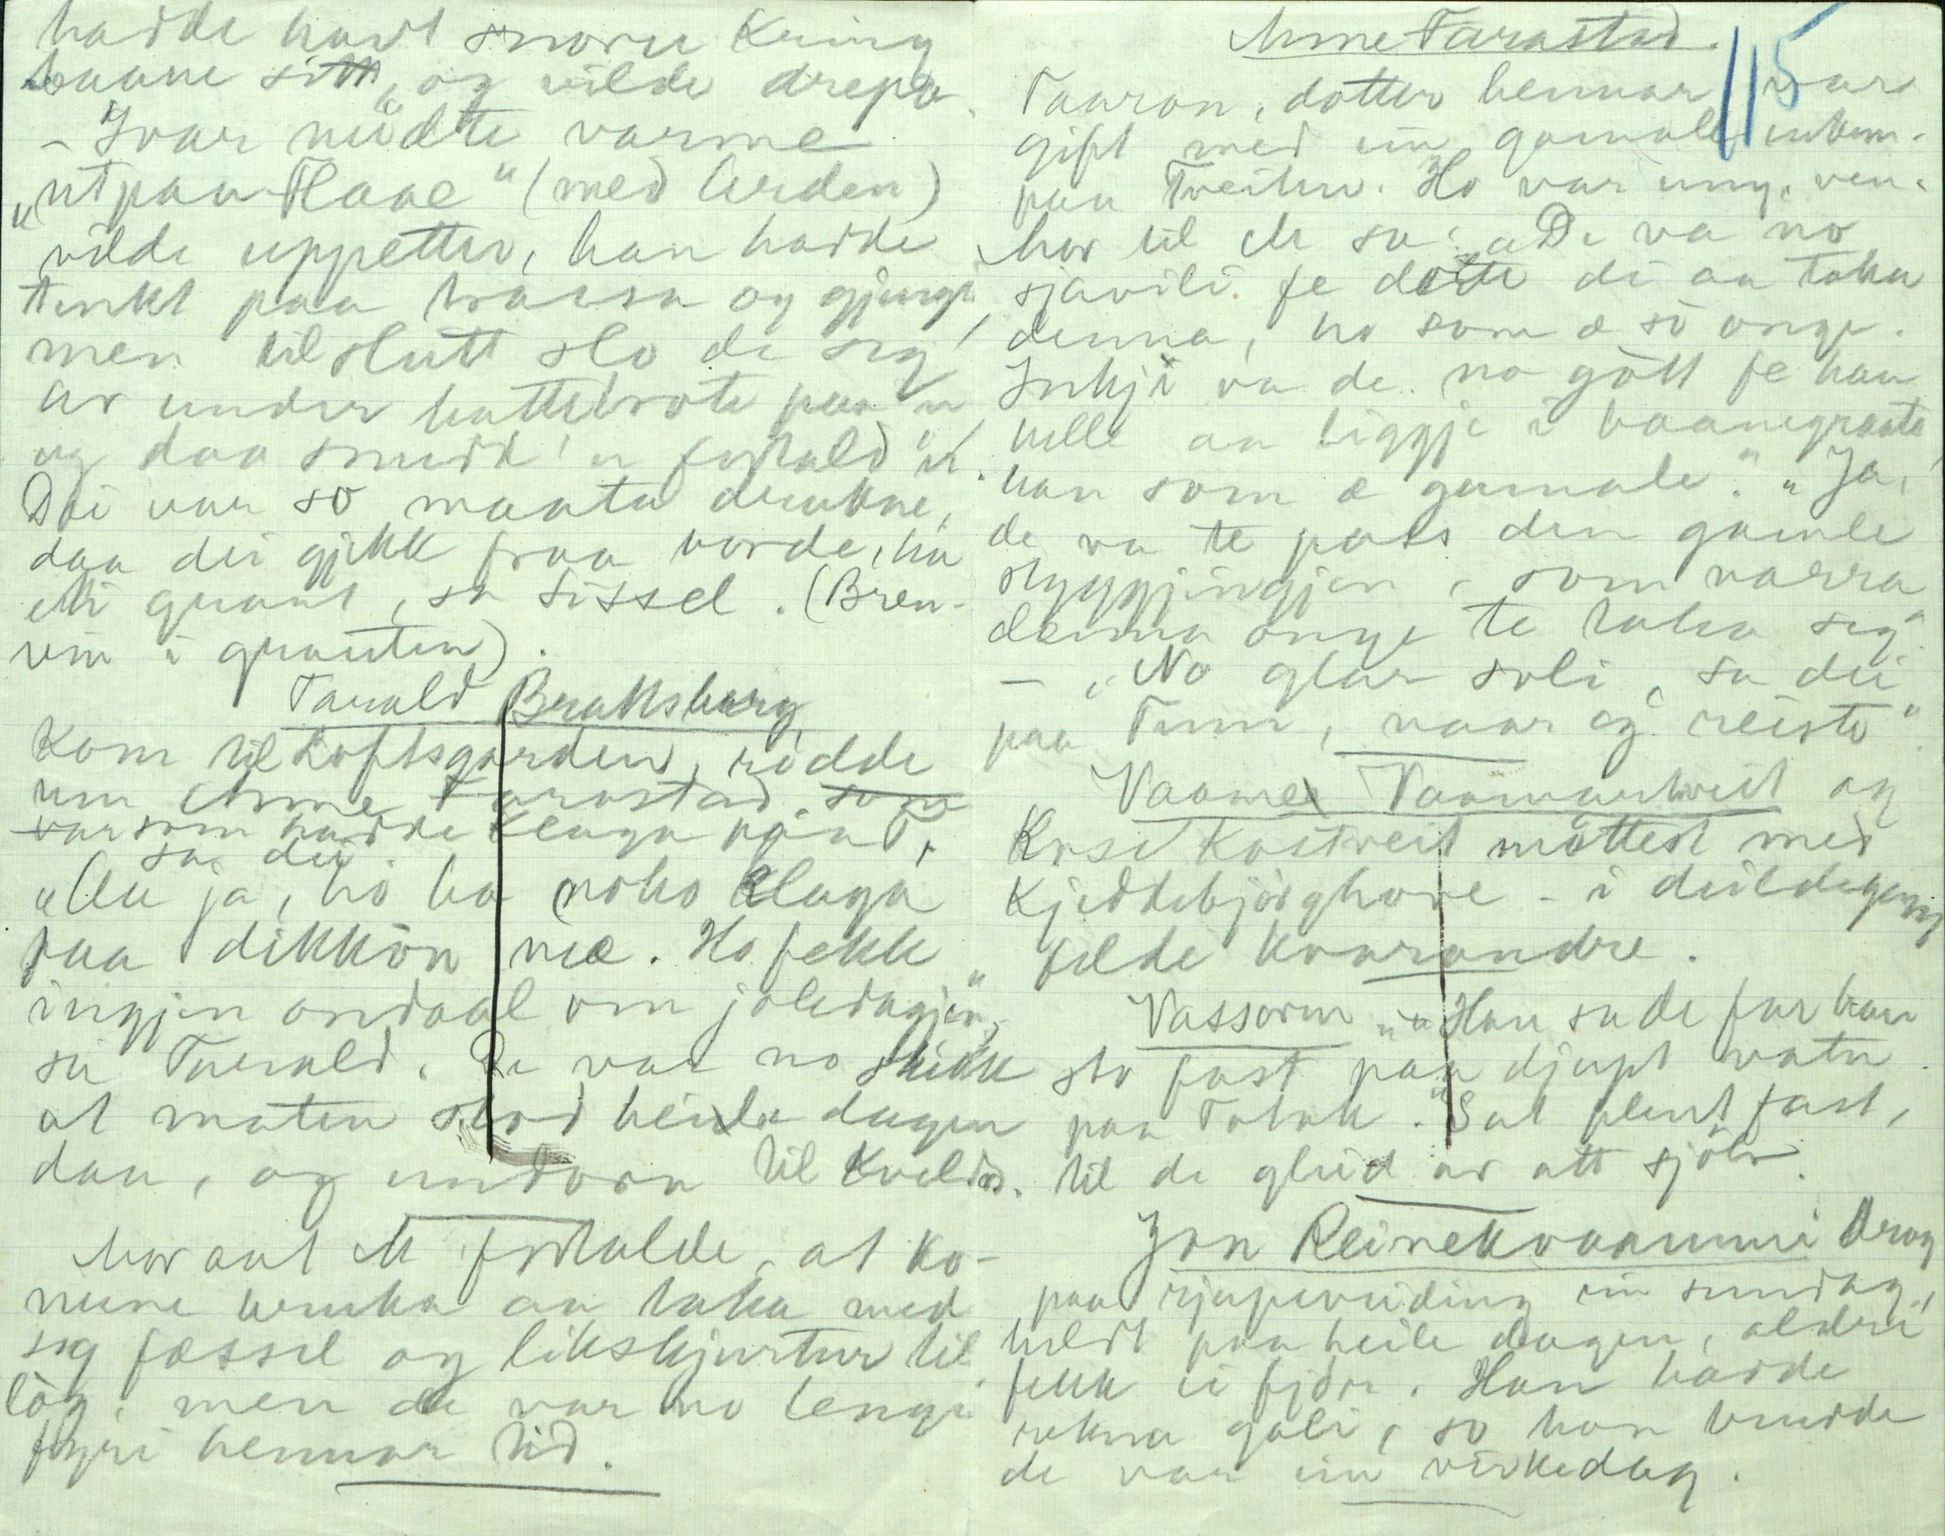 hadde havt snoru kring
baane sitt, og vilde drepa
- Ivar nudte varme
"utpaa Flaae" (med Urden)
vilde uppetter, han hadde
tenkt paa
men tilslutt slo de seg
av under hattebrote paa'n
og daa snudd'n
Dei var so maata drukne,
daa dei gjekk fraa borde, ha
eti graut, sa Sissel. (Bren-
vin i grauten).
Tarald Brattsberg
kom til Loftsgarden, rødde
um Anne Tarastad som
var som hadde klaga paa d,
sa dei.
"Aa ja, ho ha noko klaga
paa dikkòn mæ. Ho fekk
ingjen ondaal om joledagjen",
sa Tarald. De var no skikk
at maten stod heile dagen
daa, og undorn til kvelds.
Mor aat M fortalde, at ko-
nune bruka aa taka med
seg fæssel og likskjurtur til
lòg, men de var no lengi
fyri hennar tid.
Anne Tarastad. 115
Taaran, dotter hennar var
gift med ein gamal enkem.
paa Tveiten. Ho var ung, ven.
Mor til M sa: "De va no
sjavili fe dotte di aa taka
denna, ho som æ so onge.
Inkji va de no gott fe han
helle aa liggje i baanegraate
han som æ gamale." "Ja,
de va te pass den gamle
styggjingjen, som varra
denna onge te taka seg"
- "No glar soli, sa dei
paa Tinn, vaar og reiste"
Vaamartveit og
Kostveit møttest med
Kjeddebjørghove - i deildegang
felde kvarandre.
Vassorm "Han sa de far han
sto fast paa djupt vatn
paa Totak. "Sat plent fast,
til de gleid av att sjølv.
Jon Reinekvaammi drog
paa rjupeveiding ein sundag,
heldt paa heile dagen, aldri
fekk ei fjør. Han hadde
rekna gali, so han trudde
de var ein virkedag.